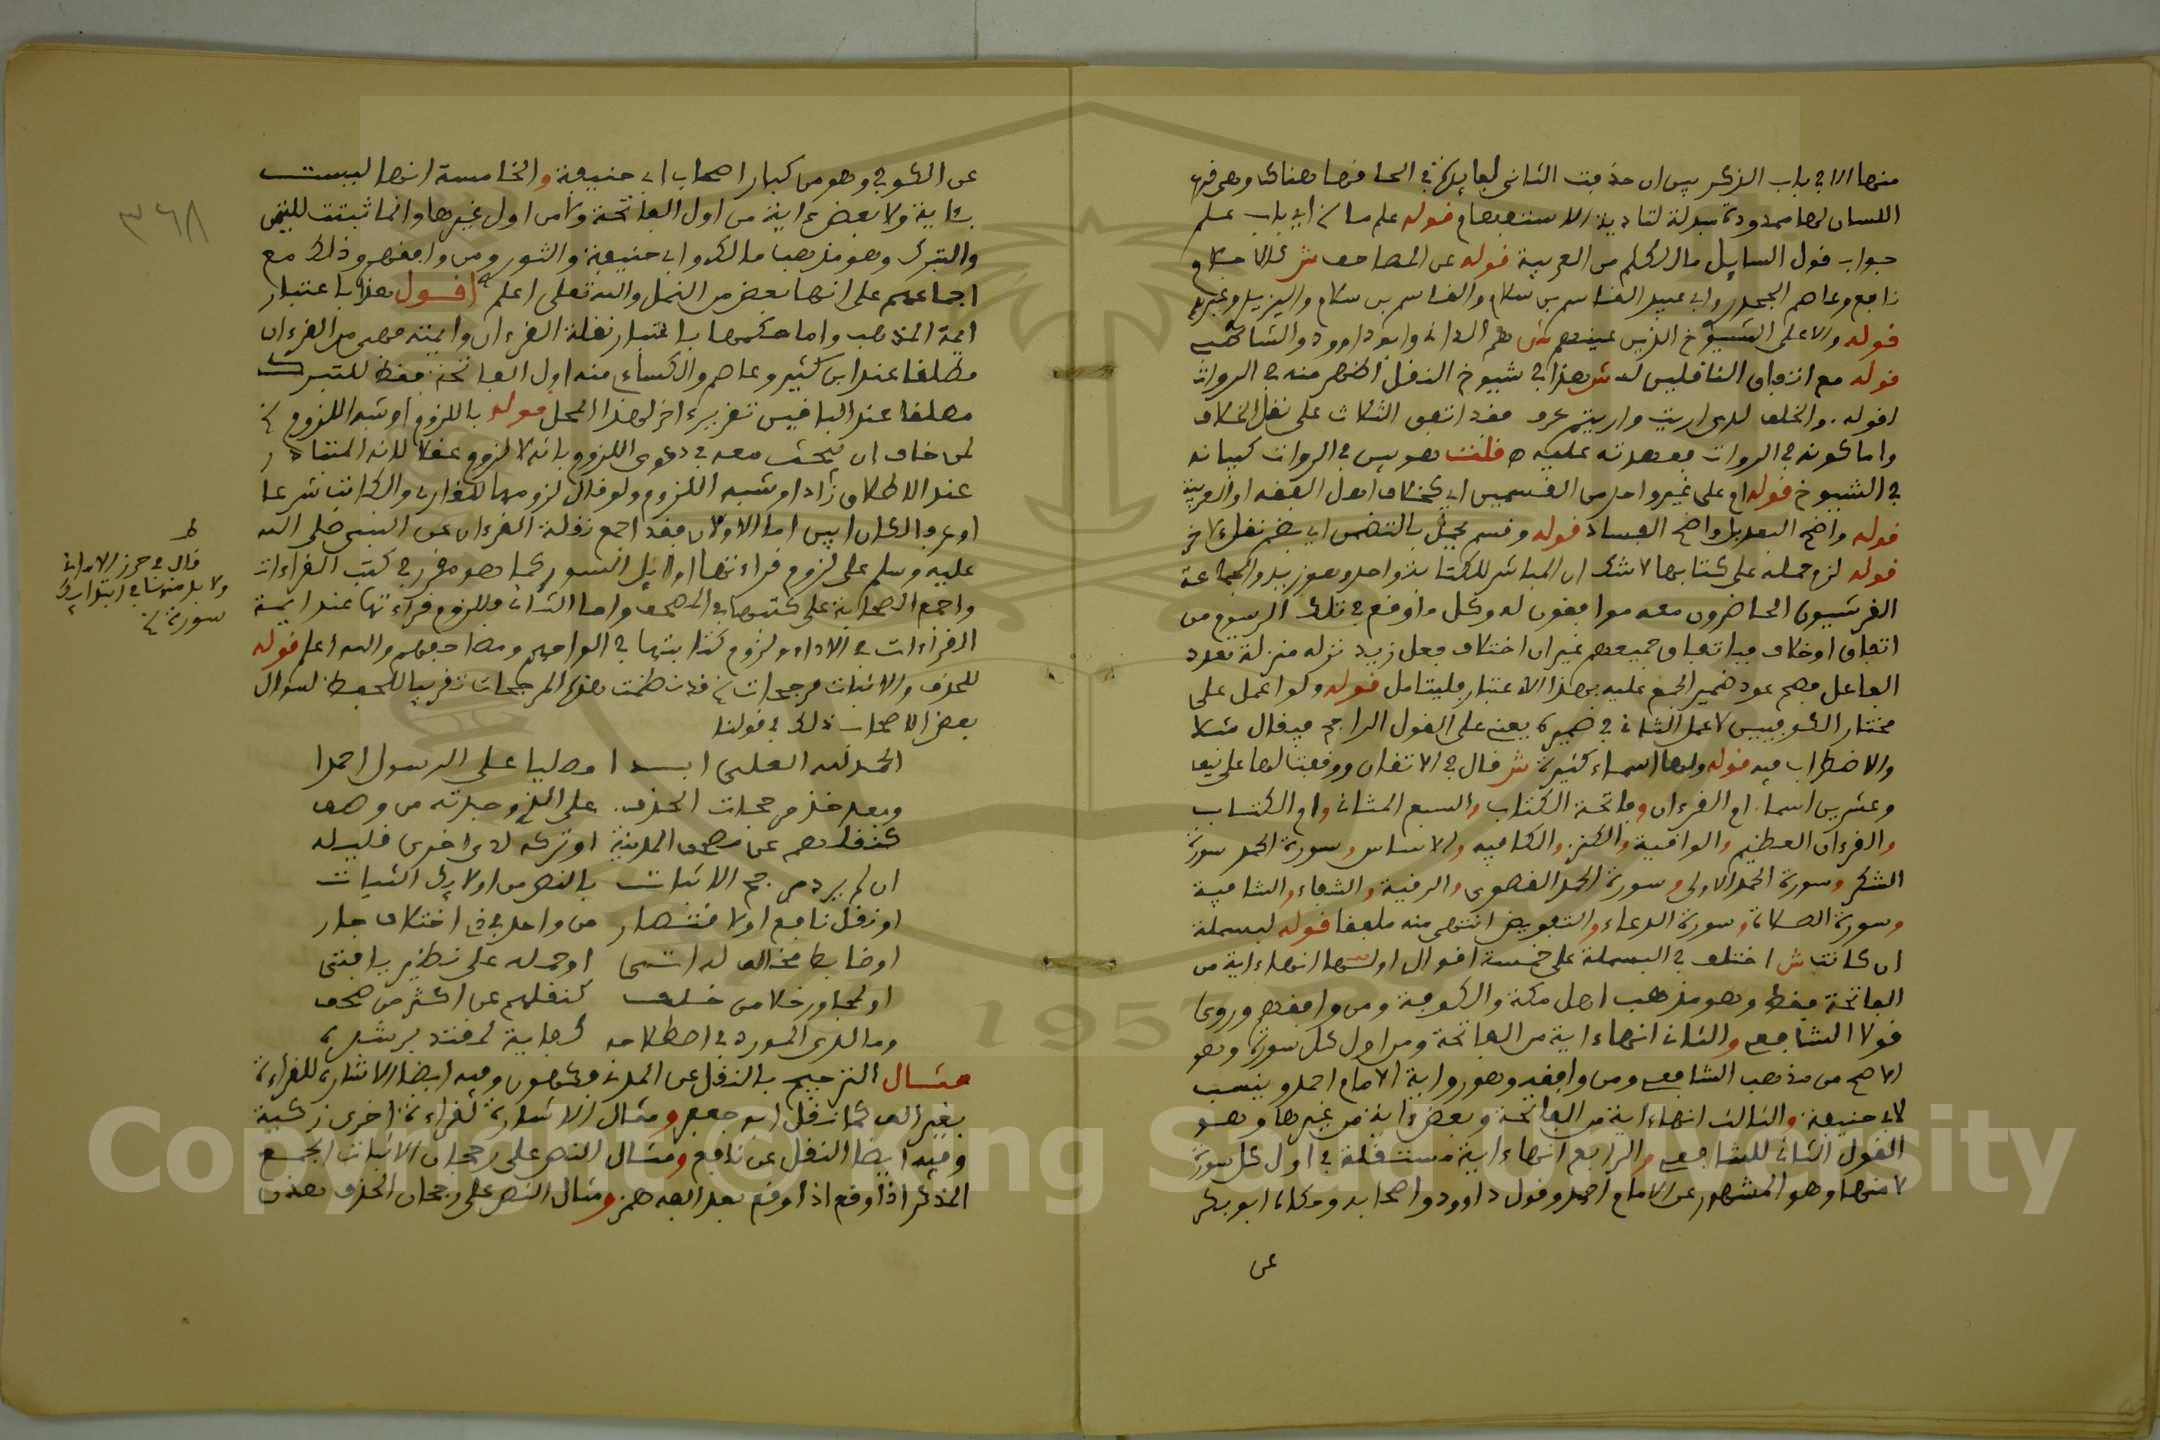 منها الا في باب الذكر يس ان حذفت الثاني
اللسان لها ممدودة مبدلة لتادية الاستفهام قوله علم ما في اي باب علم
جواب قول السايل ما الكلم من العربية قوله عن المصاحف ش كالامام و
نافع وعاصم الجحدري وابي عبيد القاسم بن سلام والقاسم بن سلام واليزيدي وغيرهم
قوله والاعلى الشيوخ الذين عينهم ش هم الداني وابو داوود والشاطبي
قوله مع اتفاق الناقلين له ش هذا في شيوخ النقل اظهر منه في الروات
لقوله والخلف لدى اريت واريتم عرف فقد اتفق الثلاث على نقل الخلاف
واما كونه في الروات فعهدته عليه ه قلت هو بين في الروات كبيانه
في الشيوخ قوله او على غير واحد من القسمين اي بخلاف اهل الفقه او العربية
قوله واضح التعديل واضح الفساد قوله وقسم يجيء بالنص اي بضم نقل لاخر
قوله لزم حمله على كتابها لا شك ان المباشر للكتابة واحد وهو زيد والجماعة
القرشيون الحاضرون معه موافقون له وكل ما وقع في تلك الرسوم من
اتفاق او خلاف فباتفاق جميعهم غير ان اختلاف فعل زيد نزله منزلة تعدد
الفاعل فصح عود ضمير الجمع عليه بهذا الاعتبار فليتامل قوله ولو اعمل على
مختار الكوفيين لاعمل الثاني في ضميره يعني على القول الراجح فيقال مثلا
والاضطراب فيه قوله ولها اسماء كثيرة ش قال في الاتقان ووقفت لها على نيف
وعشرين اسما ام القرءان وفاتحة الكتاب والسبع المثاني وام الكتاب
والقرءان العظيم والوافية والكنز والكافيه والاساس وسورة الحمد سورة
الشكر وسورة الحمد الاولى وسورة الحمد القصوى والرقية والشفاء والشافية
وسورة الصلاة وسورة الدعاء والتفويض انتهى منه ملفقا قوله لبسملة
ان كانت ش اختلف في البسملة على خمسة اقوال اولها انها ءاية من
الفاتحة فقط وهو مذهب اهل مكة والكوفة ومن وافقهم وروي
قولا الشافعي والثاني انها ءاية من الفاتحة ومن اول كل سورة وهو
الاصح من مذهب الشافعي ومن وافقه وهو رواية الامام احمد وينسب
لابي حنيفة والثالث انها ءاية من الفاتحة وبعض ءاية من غيرها وهو
القول الثاني للشافعي والرابع انها ءاية مستقلة في اول كل سورة
لا منها وهو المشهور عن الامام احمد وقول داوود واصحابه وحكاه ابو بكر
عن
٣٦٨
عن الكوفي وهو من كبار اصحاب ابي حنيفة والخامسة انها ليست
بئاية ولا بعض ءاية من اول الفاتحة ولا من اول غيرها وانما ثبتت للتيمن
والتبرك وهو مذهب مالك وابي حنيفة والثوري ومن وافقهم وذلك مع
اجماعهم على انها بعض من النمل والله تعلى اعلم ه اقول هذا باعتبار
ايمة المذهب واما حكمها باعتبار نقلة القرءان وايمته فهي من القرءان
مطلقا عند ابن كثير وعاصم والكسائي منه اول الفاتحة فقط للتبرك
مطلقا عند الباقين تقرير ءاخر لهذا المحل قوله باللزوم او شبه اللزوم
لمن خاف ان يبحث معه في دعوى اللزوم بانه لا لزوم عقلا لانه المتبادر
عند الاطلاق زاد او شبه اللزوم ولو قال لزومها للقارئ والكاتب شرعا
او عرفا لكان ابين اما الاول فقد اجمع نقلة القرءان عن النبي صلى الله
عليه وسلم على لزوم قراءتها اوايل السور كما هو مقرر في كتب القراءات
واجمع الصحابة على كتبها في المصحف واما الثاني فللزوم قراءتها عند ايمة
القراءات في الاداء ولزوم كتابتها في الواحهم ومصاحفهم والله اعلم قوله
للحذف والاثبات مرجحات قد نظمت هذه المرجحات تقريبا للحفظ لسوال
بعض الاصحاب ذلك في قولنا
الحمد لله العلي ابدا مصليا على الرسول احمدا
وبعد خذ مرجحات الحذف على الذي وجدته من وصف
كنقلهم عن مصحف المدينة او تركه لدى اخرى فليله
ان لم يرد مرجح الاثبات بالنص من اولايك الثبات
او نقل نافع اولا قتصار من واحد في ذي اختلاف جار
او ضابط مخالف له انتمى او حمله على نظير يا فتى
او لمجاور خلا من خلف كنقلهم عن اكثر من صحف
وما الذي المورد في اصطلاحه كجابية لمقتد برشده
مثال الترجيح بالنقل عن المدني فيكهون وفيه ايضا الاشارة للقراءة
بغير الف كما نقل ابو جعفر ومثال الاشارة لقراءة اخرى زكية
وفيه ايضا النقل عن نافع ومثال النص على رجحان الاثبات الجمع
المذكر اذا وقع بعد الفه همز ومثال النص على رجحان الحذف هذان
ط
قال في حرز الاماني
ولا بد منها في ابتدايك
سورة